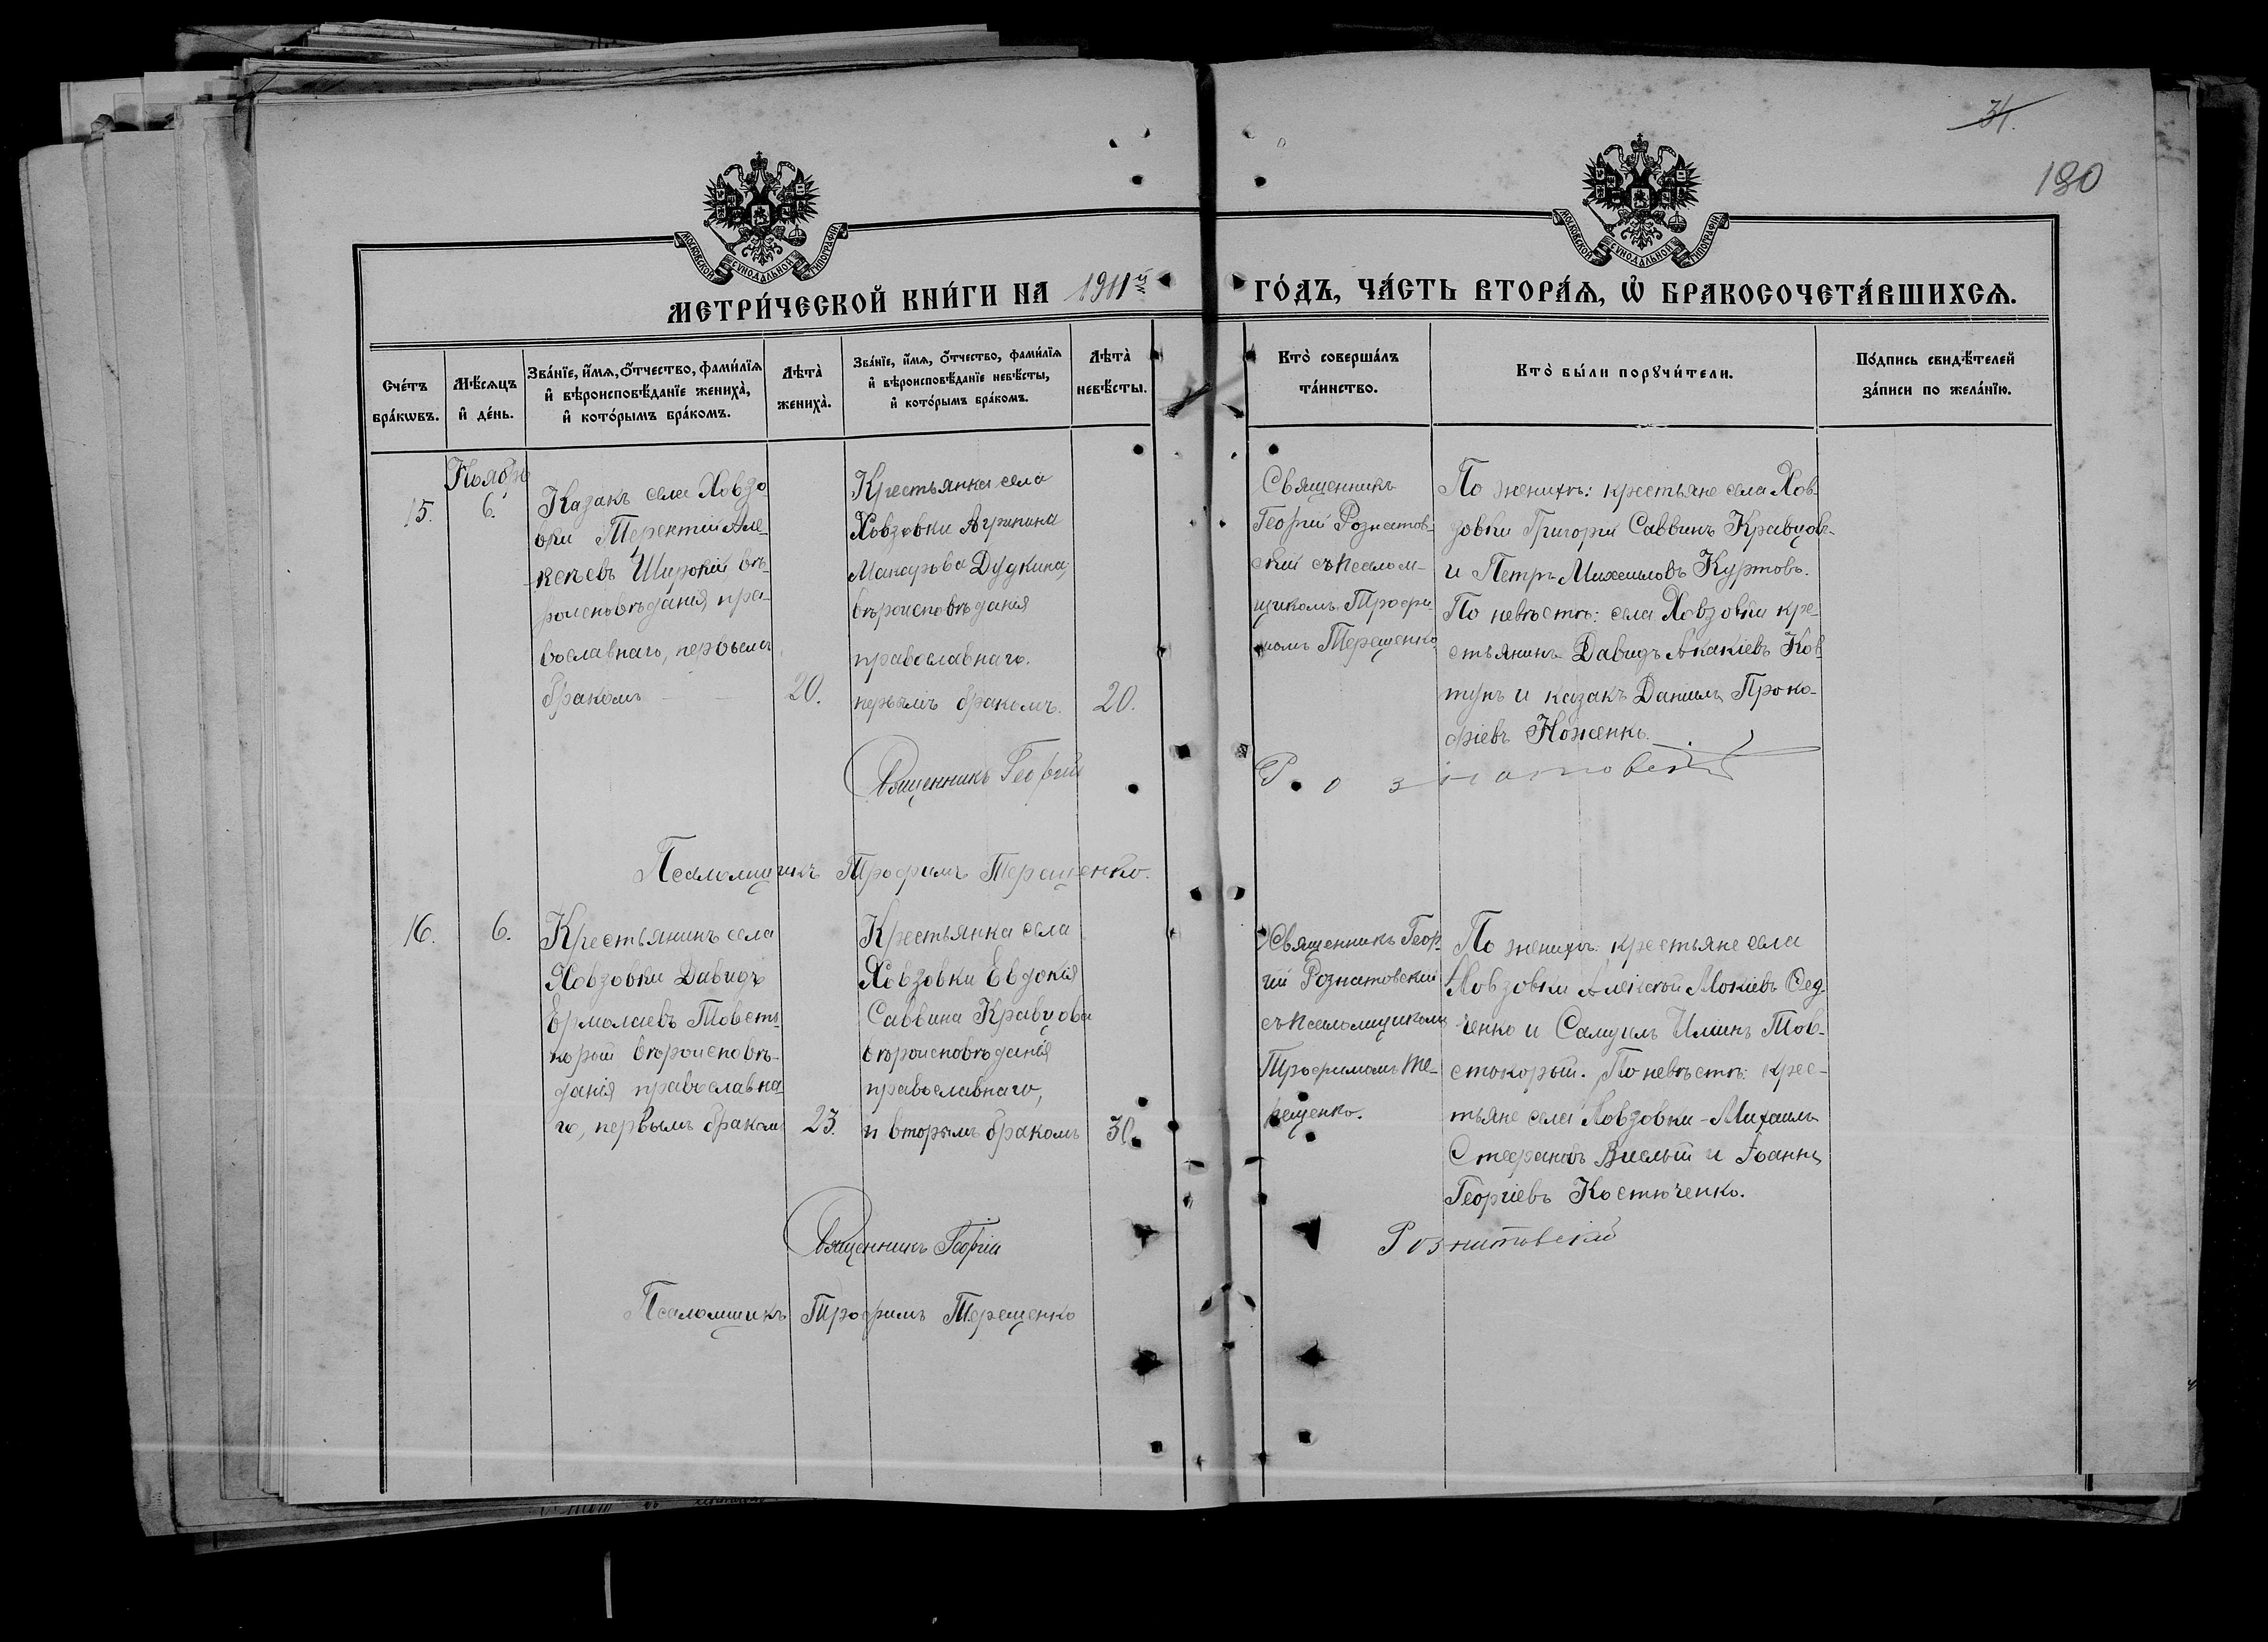 31.
180
МОСКОВСКОЙ СѴНОДАЛЬНОЙ ТИПОГРАФІИ
МОСКОВСКОЙ СѴНОДАЛЬНОЙ ТИПОГРАФІИ
МЕТРИ́ЧЕСКОЙ КНИ́ГИ НА 1911й
ГО́ДЪ, ЧА́СТЬ ВТОРА́Ѧ, Ѽ БРАКОСОЧЕТА́ВШИХСѦ.
Сче́тъ бра́кѡвъ.
Мѣ́сѧцъ и҆ де́нь.
Зва́нїе, и҆́мѧ, ѻ҆́тчество, фами́лїѧ и҆ вѣроисповѣ́данїе жениха̀, и҆ кото́рымъ бра́комъ.
Лѣта̀ жениха̀.
Зва́нїе, и҆́мѧ, ѻ҆́тчество, фами́лїѧ и҆ вѣроисповѣ́данїе невѣ́сты, и҆ кото́рымъ бра́комъ.
Лѣта̀ невѣ́сты.
Кто̀ соверша́лъ та́инство.
Кто̀ бы́ли порꙋчи́тели.
По́дпись свидѣ́телей за́писи по жела́нїю.
15.
Ноябрь
6.
Казакъ села Ховзо
вки Терентій Але-
ксѣевъ Широкій вѣ-
роисповѣданія пра-
вославнаго, первымъ
бракомъ
20.
Крестьянка села
Ховзовки Агрипина
Макарова Дудкина,
вѣроисповѣданія
православнаго.
первымъ бракомъ.
20.
Священникъ
Георгій Рознатов-
скій съ псалом-
щикомъ Трофи-
момъ Терещенко
По женихѣ: крестьяне села Хов-
зовки Григорій Саввинъ Кравцовъ
и Петръ Михаиловъ Куртовъ.
По невѣстѣ: села Ховзовки кре-
стьянинъ Давидъ Акакіевъ Ков-
тунъ и казакъ Даніилъ Проко-
фіевъ Ноженко.
Священникъ Георгій Рознатовскій
Псаломщикъ Трофимъ Терещенко.
16.
6.
Крестьянинъ села
Ховзовки Давидъ
Ермолаевъ Товсто-
корый вѣроисповѣ-
данія православна-
го, первымъ бракомъ
23.
Крестьянка села
Ховзовки Евдокія
Саввина Кравцова
вѣроисповѣданія
православнаго,
и вторымъ бракомъ
30.
Священникъ Геор-
гій Рознатовскій
съ псаломщикомъ
Трофимомъ Те-
рещенко.
По женихѣ: крестьяне села
Ховзовки Алексѣй Мокіевъ Фед-
ченко и Самуилъ Илiинъ Тов-
стокорый. По невѣстѣ: крес-
тьяне села Ховзовки - Михаилъ
Стефановъ и Іоаннъ
Георгіевъ Костюченко.
Священникъ Георгій Рознатовскій
Псаломщикъ Трофимъ Терещенко